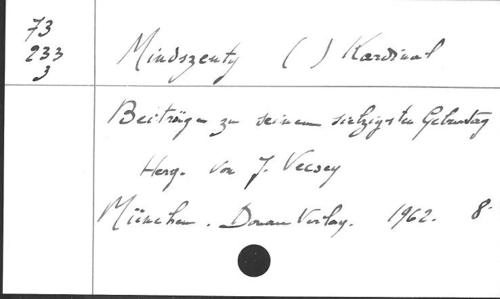 73
233
3
Mindszenty ( ) Kardinal
Beiträge zu seinem siebzigsten Geburtstag
Herg. von J. Vecsey
München. Donau Verlag. 1962. 8.